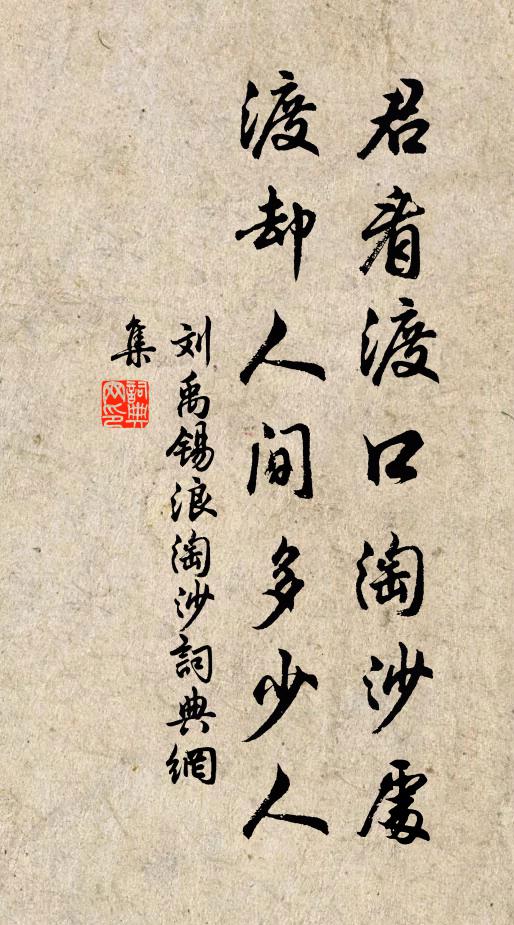 君看渡口淘沙處
渡却人間多少人
刘禹锡浪淘沙詞典網
集
詞典
网印